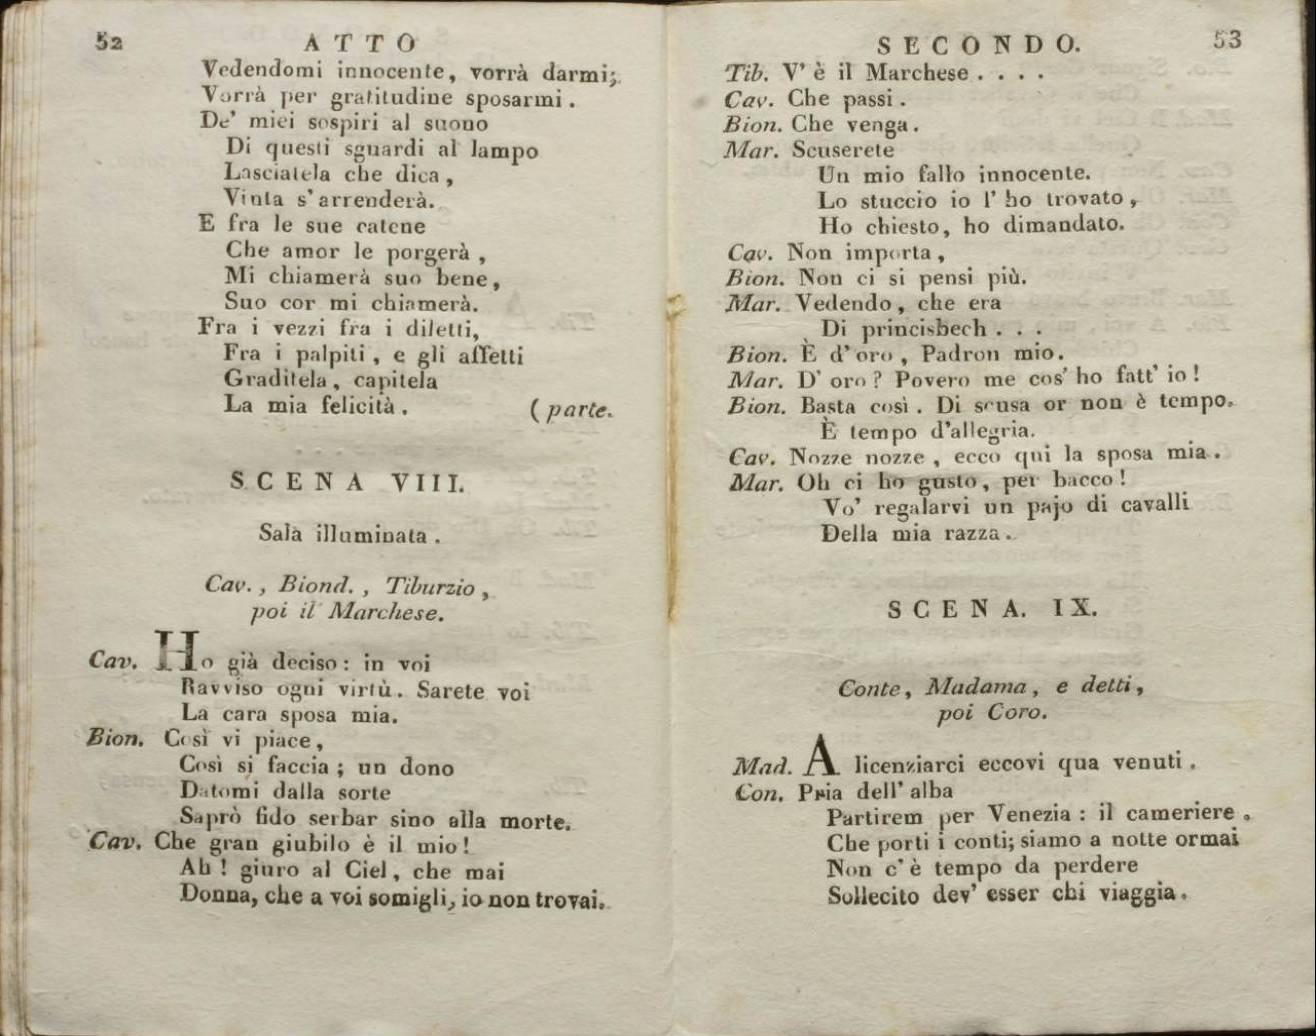 52
ATTO
Vedendomi innocente, vorrà darmi;
Vorrà per gratitudine sposarmi.
De' miei sospiri al suono
Di questi sguardi al lampo
Lasciatela che dica,
Vinta s'arrenderà.
E fra le sue catene
Che amor le porgerà,
Mi chiamerà suo bene,
Suo cor mi chiamerà.
Fra i vezzi fra i diletti,
Fra i palpiti, e gli affetti
Graditela, capitela
La mia felicità. (parte.
SCENA VIII.
Sala illuminata.
Cav., Biond., Tiburzio,
poi il Marchese.
Cav. Ho già deciso: in voi
Ravviso ogni virtù. Sarete voi
La cara sposa mia.
Bion. Così vi piace,
Così si faccia; un dono
Datomi dalla sorte
Saprò fido serbar sino alla morte.
Cav. Che gran giubilo è il mio!
Ah! giuro al Ciel, che mai
Donna, che a voi somigli, io non trovai.
SECONDO.
53
Tib. V' è il Marchese....
Cav. Che passi.
Bion. Che venga.
Mar. Scuserete
Un mio fallo innocente.
Lo stuccio io l' ho trovato,
Ho chiesto, ho dimandato.
Cav. Non importa,
Bion. Non ci si pensi più.
Mar. Vedendo, che era
Di princisbech...
Bion. È d'oro, Padron mio.
Mar. D' oro? Povero me cos' ho fatt' io!
Bion. Basta così. Di scusa or non è tempo.
È tempo d'allegria.
Cav. Nozze nozze, ecco qui la sposa mia.
Mar. Oh ci ho gusto, per bacco!
Vo' regalarvi un pajo di cavalli
Della mia razza.
SCENA. IX.
Conte, Madama, e detti,
poi Coro.
Mad. A licenziarci eccovi qua venuti.
Con. Pria dell' alba
Partirem per Venezia: il cameriere.
Che porti i conti; siamo a notte ormai
Non c' è tempo da perdere
Sollecito dev' esser chi viaggia.